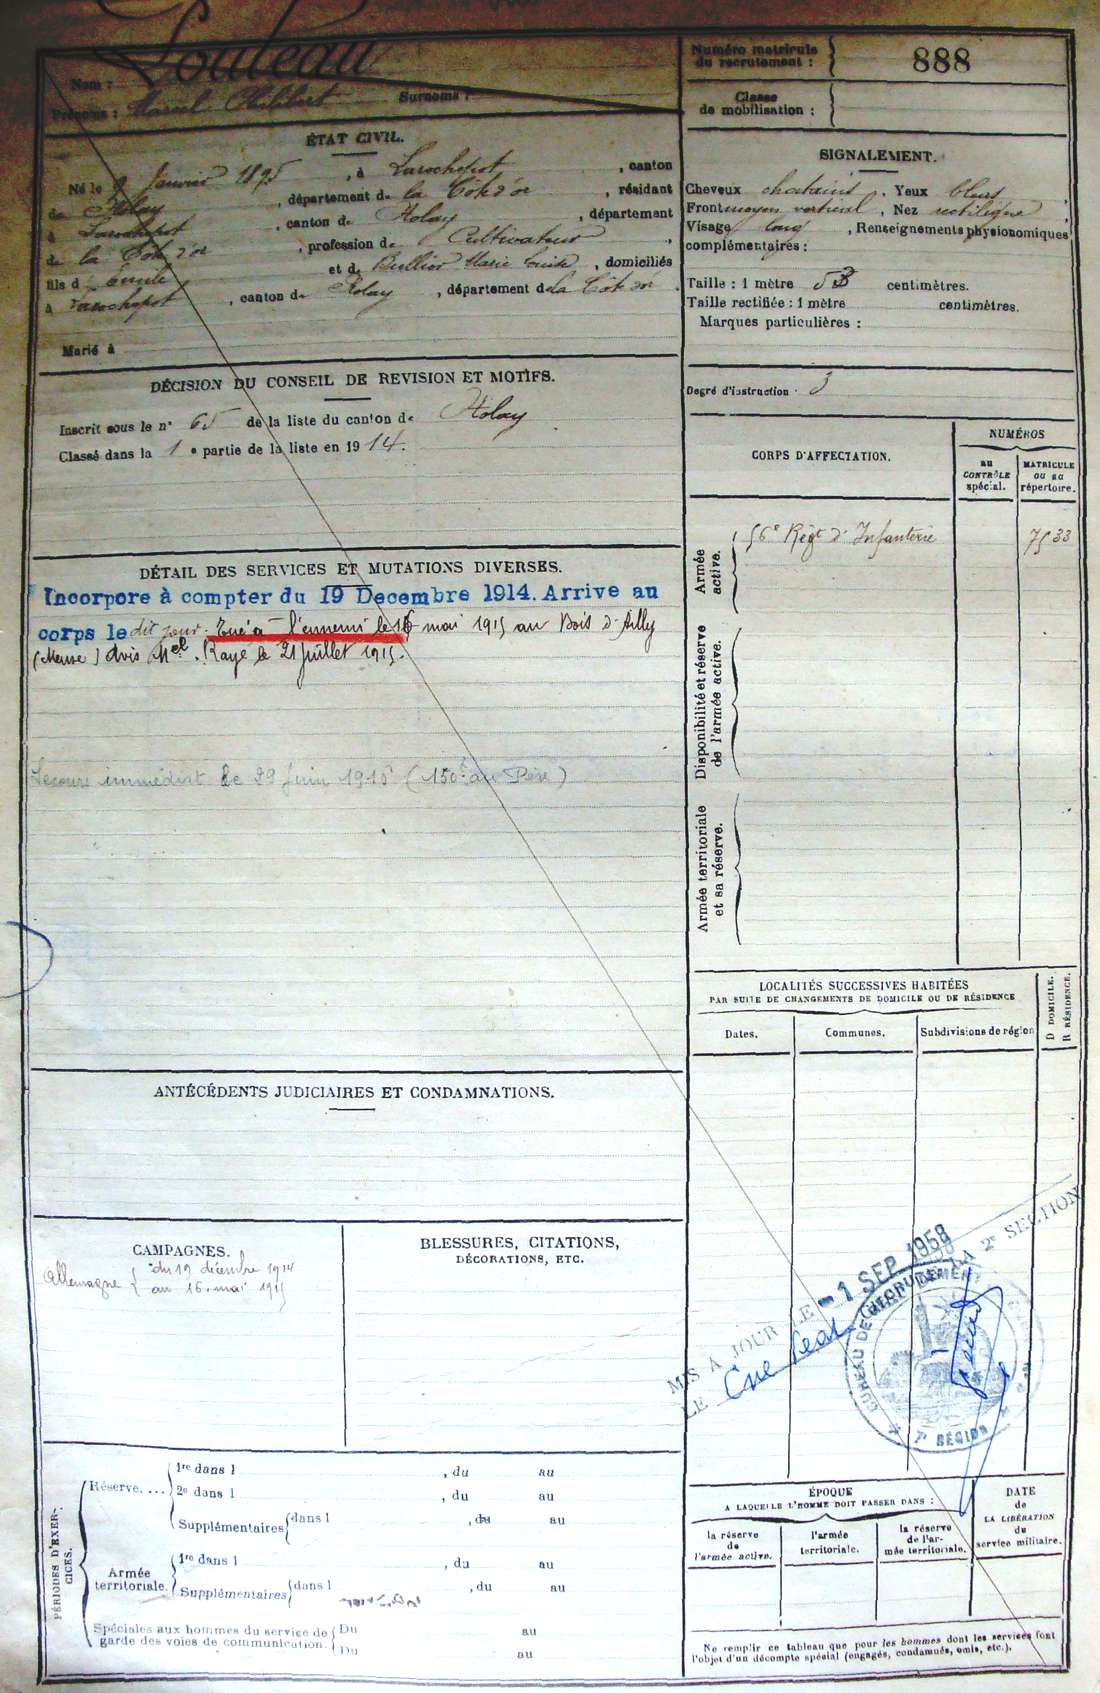 Nom : Louleau
Prénoms : Marcel Philibert Surnoms :
Numéro matricule du recrutement : 888
Classe de mobilisation :
ÉTAT CIVIL.
Né le Janvier 1895, à Larochepot, canton
de Nolay, département de la Côte d'or, résidant
à Larochepot, canton de Nolay, département
de la Côte d'or, profession de Cultivateur,
fils d'Emile et de Bullier Marie Louise, domiciliés
à Larochepot, canton de Nolay, département de la Côte d'or.
Marié à
SIGNALEMENT.
Cheveux chatains. Yeux bleus,
Front moyen vertical, Nez rectiligne,
Visage long, Renseignements physionomiques
complémentaires :
Taille : 1 mètre 53 centimètres.
Taille rectifiée : 1 mètre centimètres.
Marques particulières :
Degré d'instruction : 3
DÉCISION DU CONSEIL DE REVISION ET MOTIFS.
Inscrit sous le n° 65 de la liste du canton de Nolay
Classé dans la 1e partie de la liste en 1914.
CORPS D'AFFECTATION.
NUMÉROS
au CONTRÔLE spécial.
MATRICULE ou au répertoire.
Armée active.
56e Régt d'Infanterie 7533
Disponibilité et réserve de l'armée active.
Armée territoriale et sa réserve.
DÉTAIL DES SERVICES ET MUTATIONS DIVERSES.
Incorporé à compter du 19 Decembre 1914. Arrive au
corps le dit jour. Tué à l'ennemi le 16 mai 1915 au Bois d'Ailly
(Meuse) Avis Mel. Rayé le 21 juillet 1915.
Secours immédiat le 29 Juin 1915 (150f au Père)
LOCALITÉS SUCCESSIVES HABITÉES
PAR SUITE DE CHANGEMENTS DE DOMICILE OU DE RÉSIDENCE
Dates. Communes. Subdivisions de région
D DOMICILE.
R RÉSIDENCE.
ANTÉCÉDENTS JUDICIAIRES ET CONDAMNATIONS.
CAMPAGNES.
Allemagne du 19 décembre 1914
au 16 mai 1915
BLESSURES, CITATIONS,
DÉCORATIONS, ETC.
MIS A JOUR LE -1 SEP 1958
LE 2e SECTION
BUREAU DE RECRUTEMENT
7e RÉGION
PÉRIODES D'EXERCICES.
Réserve. ... 1re dans l , du au
2e dans l , du au
Supplémentaires dans l , du au
Armée territoriale. 1re dans l , du au
Supplémentaires dans l , du au
Spéciales aux hommes du service de garde des voies de communication. Du au
Du au
ÉPOQUE
A LAQUELLE L'HOMME DOIT PASSER DANS :
la réserve de l'armée active.
l'armée territoriale.
la réserve de l'armée territoriale.
DATE de LA LIBÉRATION du service militaire.
Ne remplir ce tableau que pour les hommes dont les services font
l'objet d'un décompte spécial (engagés, condamnés, omis, etc.).